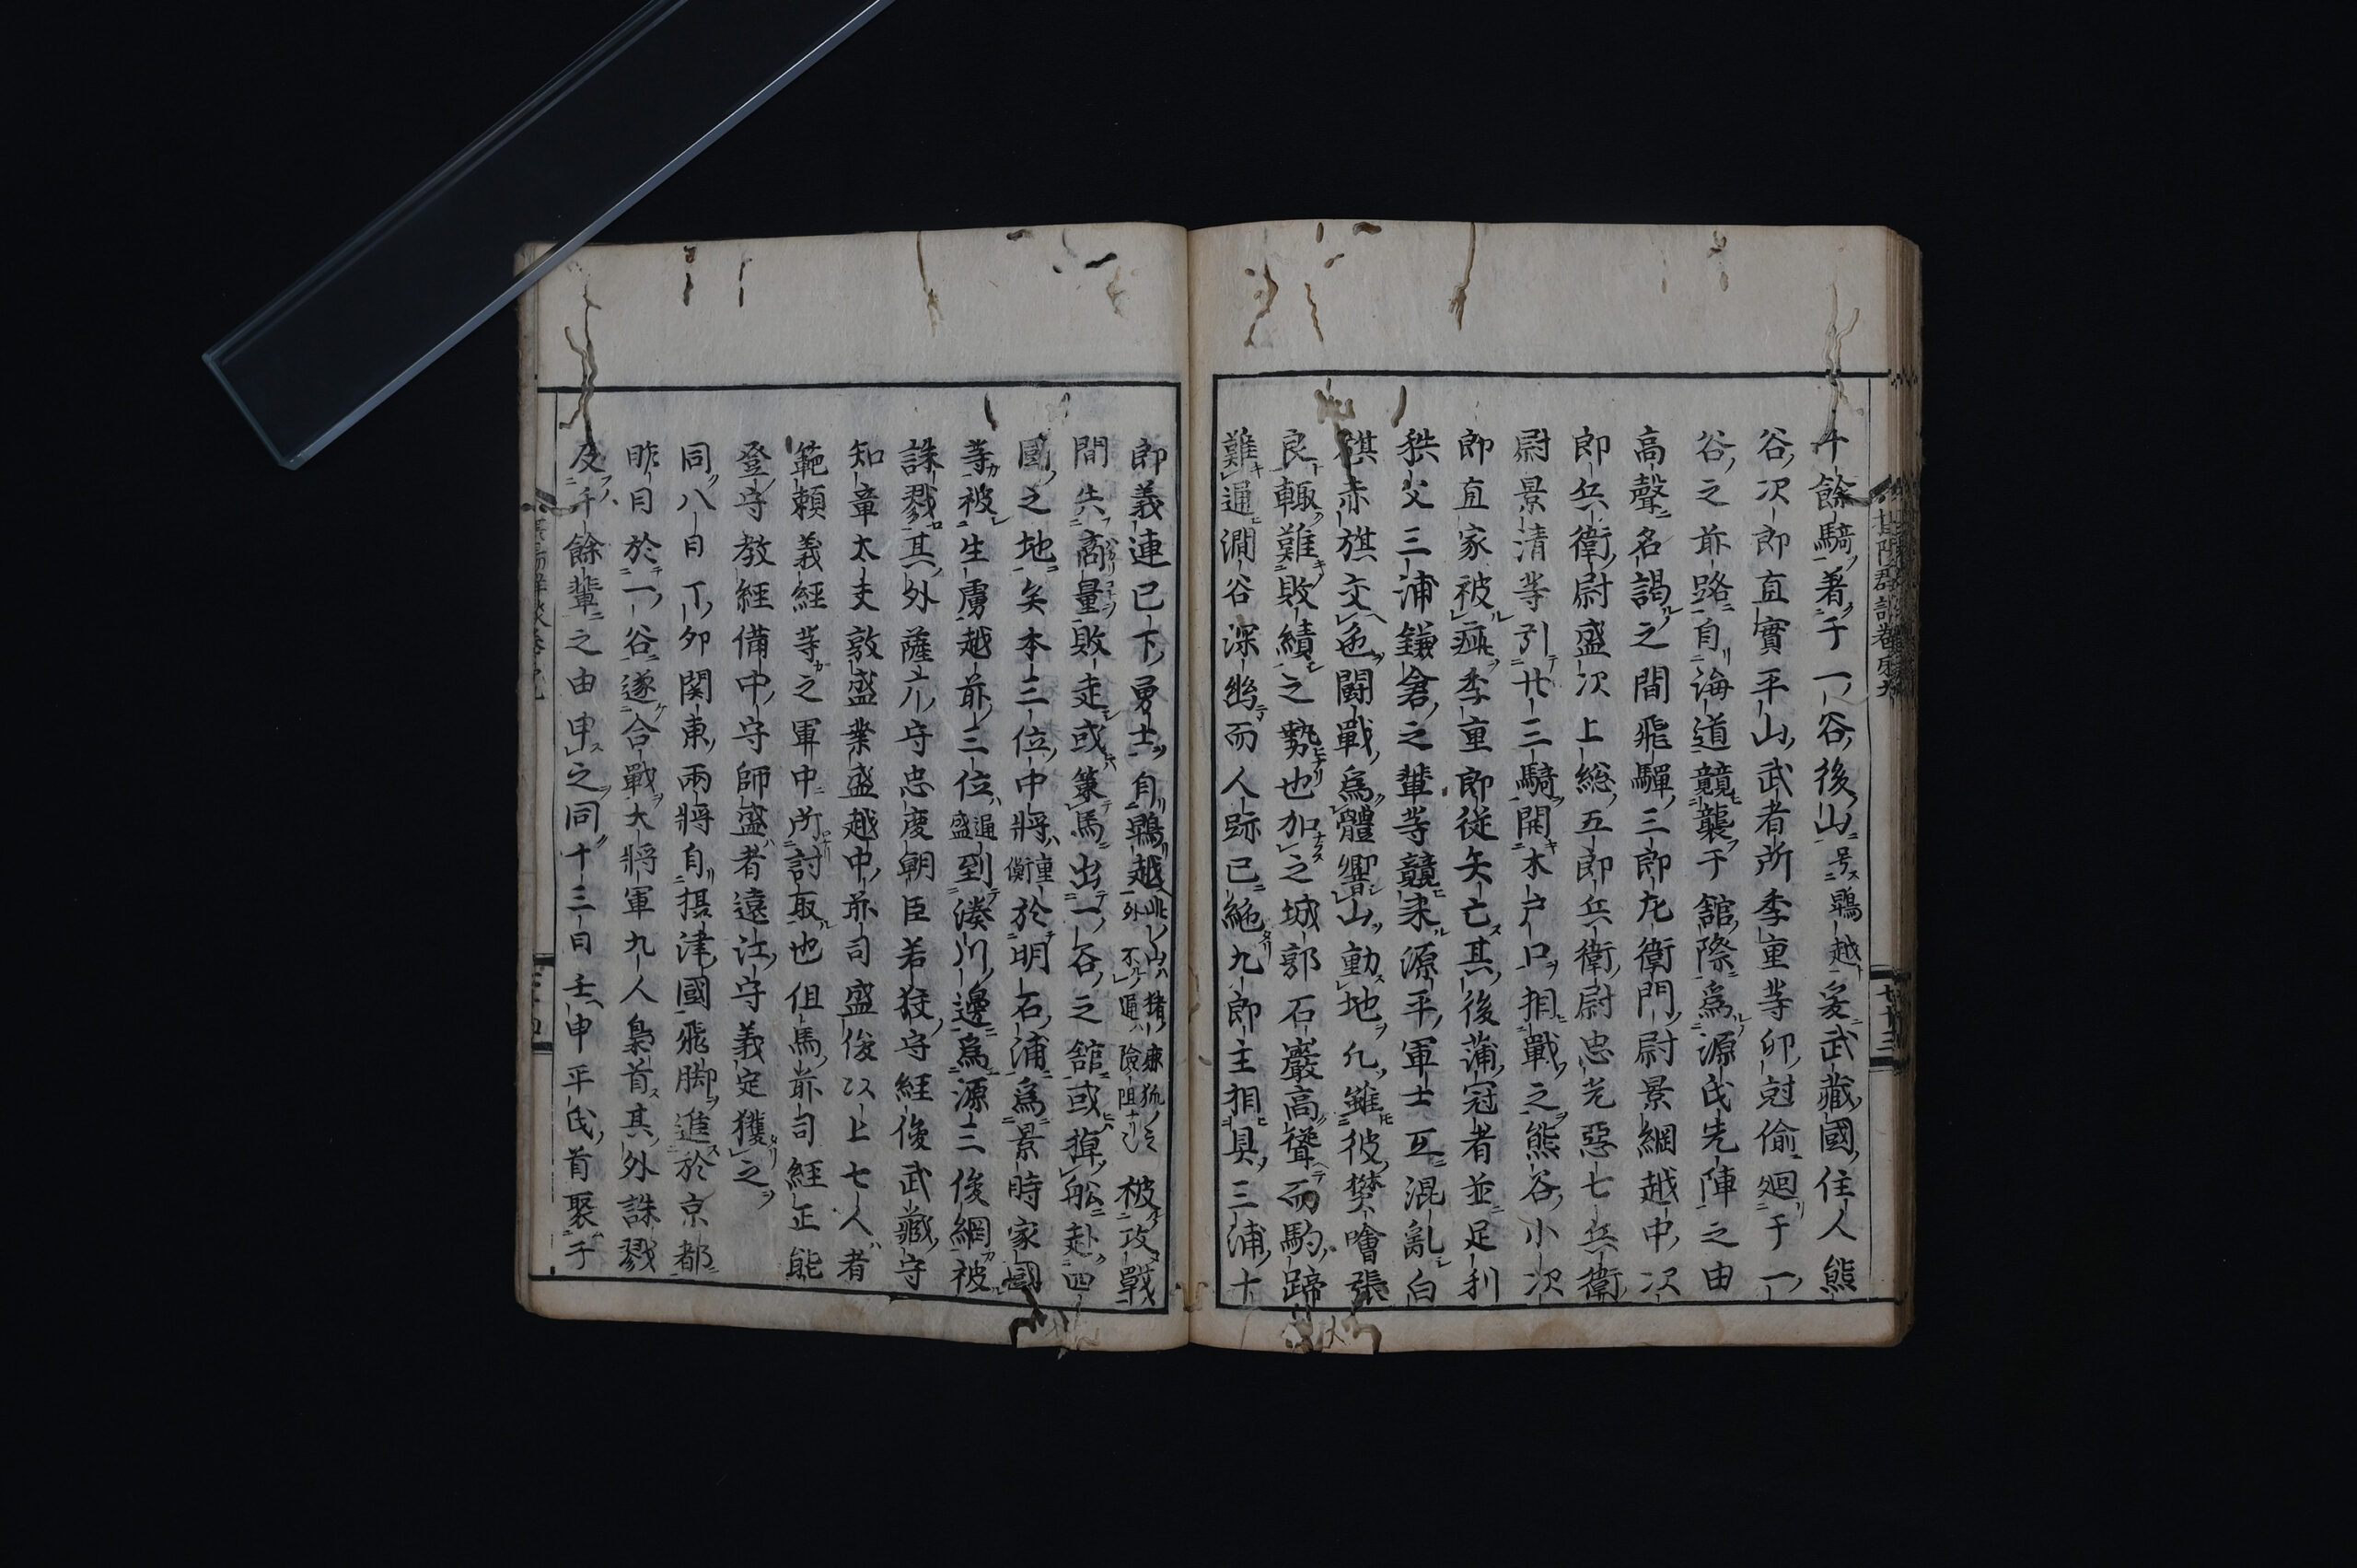 千餘騎著于一谷後山号鵯越爰武藏國住人熊
谷次郎直實平山武者所季重等卯尅偷廻于一
谷之前路自海道競襲于舘際為源氏先陣之由
高聲名謁之間飛騨三郎左衛門尉景綱越中次
郎兵衛尉盛次上総五郎兵衛尉忠光惡七兵衛
尉景清等引廿三騎開木戸口相戰之熊谷小次
郎直家被疵季重郎従夭亡其後蒲冠者並足利
秩父三浦鎌倉之輩等競来源平軍士互混亂白
旗赤旗交色闘戰為體響山動地凡雖彼樊噲張
良輙難敗績之勢也加之城郭石巖高聳而駒蹄
難通澗谷深幽而人跡已絶九郎主相具三浦十
郎義連已下勇士自鵯越此山猪鹿狐之外不通險阻也被攻戰
間失商量敗走或策馬出一谷之舘或掉舩赴四
國之地矣本三位中將重衡於明石浦為景時家國
等被生虜越前三位通盛到湊川邊為源三俊綱被
誅戮其外薩广守忠度朝臣若狹守経俊武藏守
知章太夫敦盛業盛越中前司盛俊以上七人者
範頼義経等之軍中所討取也但馬前司経正能
登守教経備中守師盛者遠江守義定獲之
同八日丁卯関東兩將自攝津國飛脚進於京都
昨日於一谷遂合戰大將軍九人梟首其外誅戮
及千餘輩之由申之同十三日壬申平氏首聚于